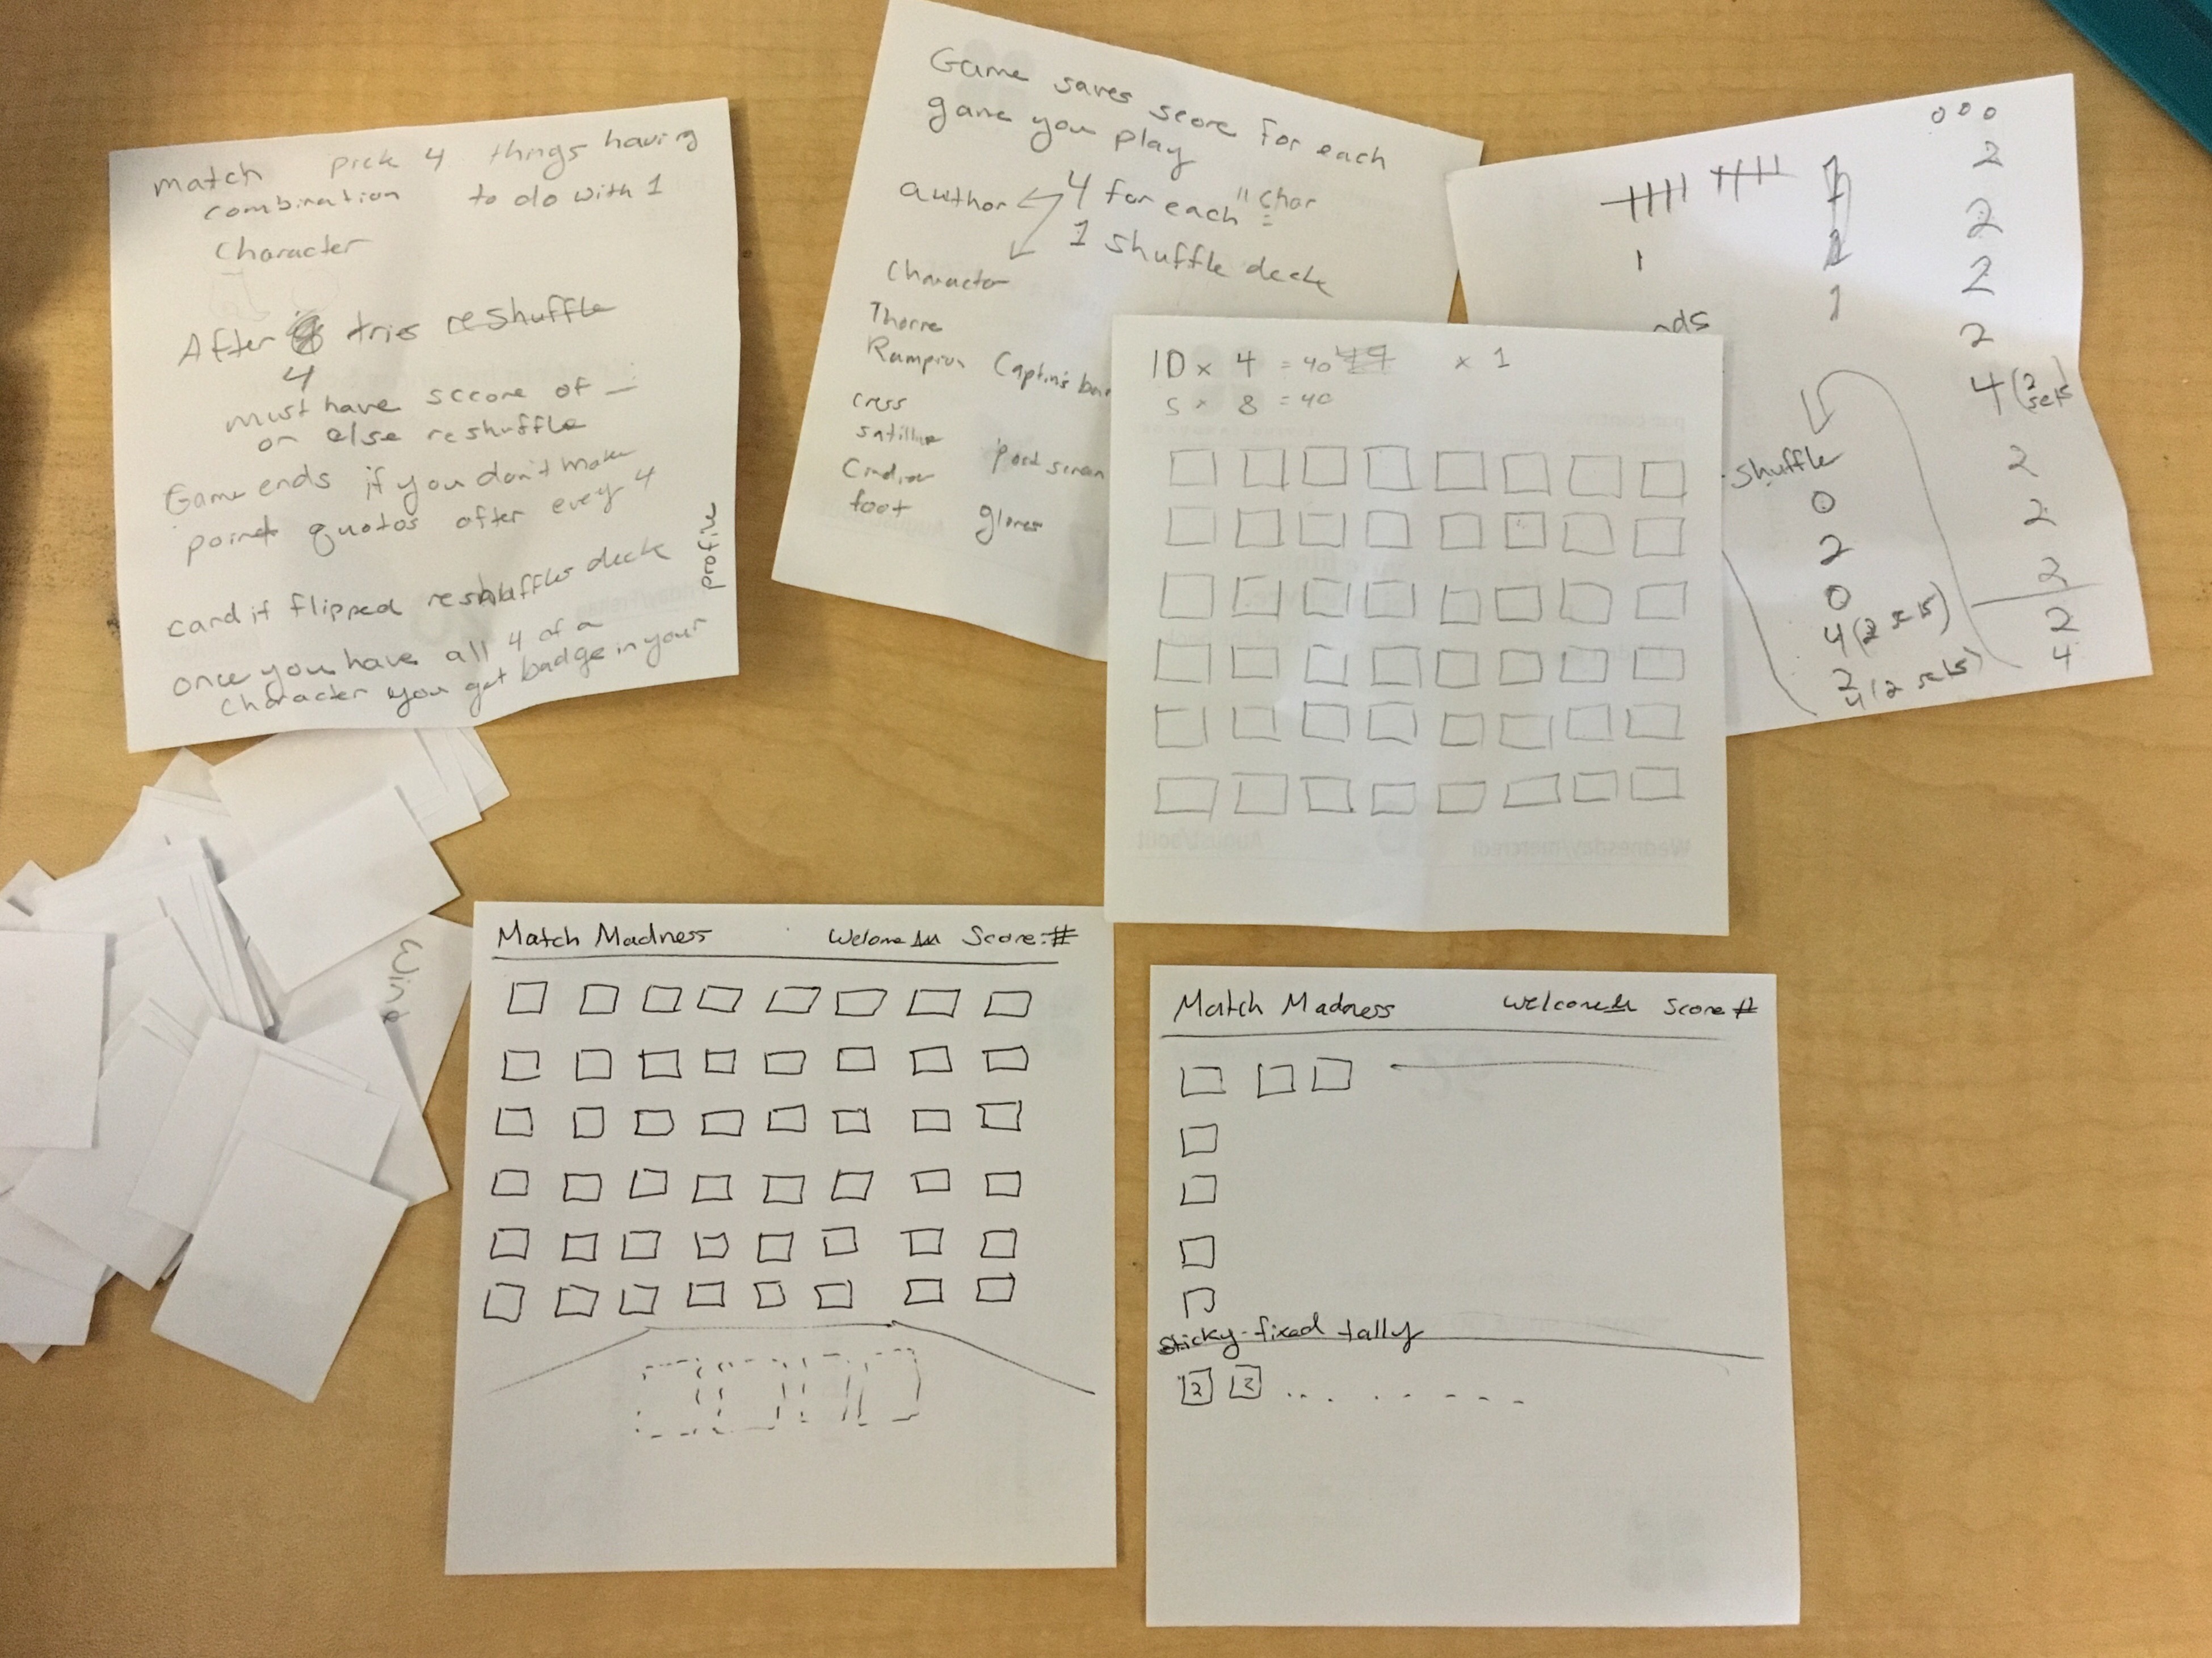 match pick 4 things having
combination to do with 1
Character
After tries reshuffle
4
must have sccore of _
or else reshuffle
Game ends if you don't make
point quotas after every 4
card if flipped reshuffles deck
once you have all 4 of a
character you get badge in your
profile
Game saves score for each
game you play
author 4 for each " char
1 shuffle deck
Character
Thorne
Rampion Captin's
cress
satillite
port screen
foot
gloves
10 x 4 = 40 x 1
5 x 8 = 40
ooo
2
2
2
2
4 (2
sets
2
2
2
2
4
1
1
shuffle
0
2
0
4 (2 sets)
2
4 (2 sets)
Wind
Match Madness Score: #
Match Madness Score #
Sticky-fixed tally
2 2
Wednesday/mercredi August/août